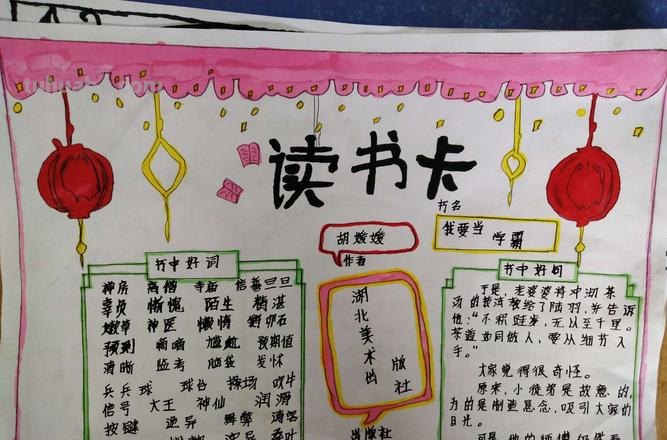 读书卡
书名
我要当 学霸
胡媛媛
作者
湖北美术出版社
出版社
书中好词
禅房 高僧 寺庙 信誓旦旦
辜负 惭愧 陌生 精湛
嫩草 神医 懒惰 鹅卵石
预到 嘀嘀 尴尬 预期值
清晰 监考 脑袋 发怵
乒乓球 球台 操场 吹牛
信号 大王 神仙 润滑
按键 诡异 舞弊
书中好句
于是,老婆婆将冲沏茶
汤的技法教给了陆羽,并告诉
他:“不积跬步,无以至千里。
茶道如同做人,要从细节入
手。”
大家觉得很奇怪。
原来,小徒弟是故意的,
为的是制造悬念,吸引大家的
目光。